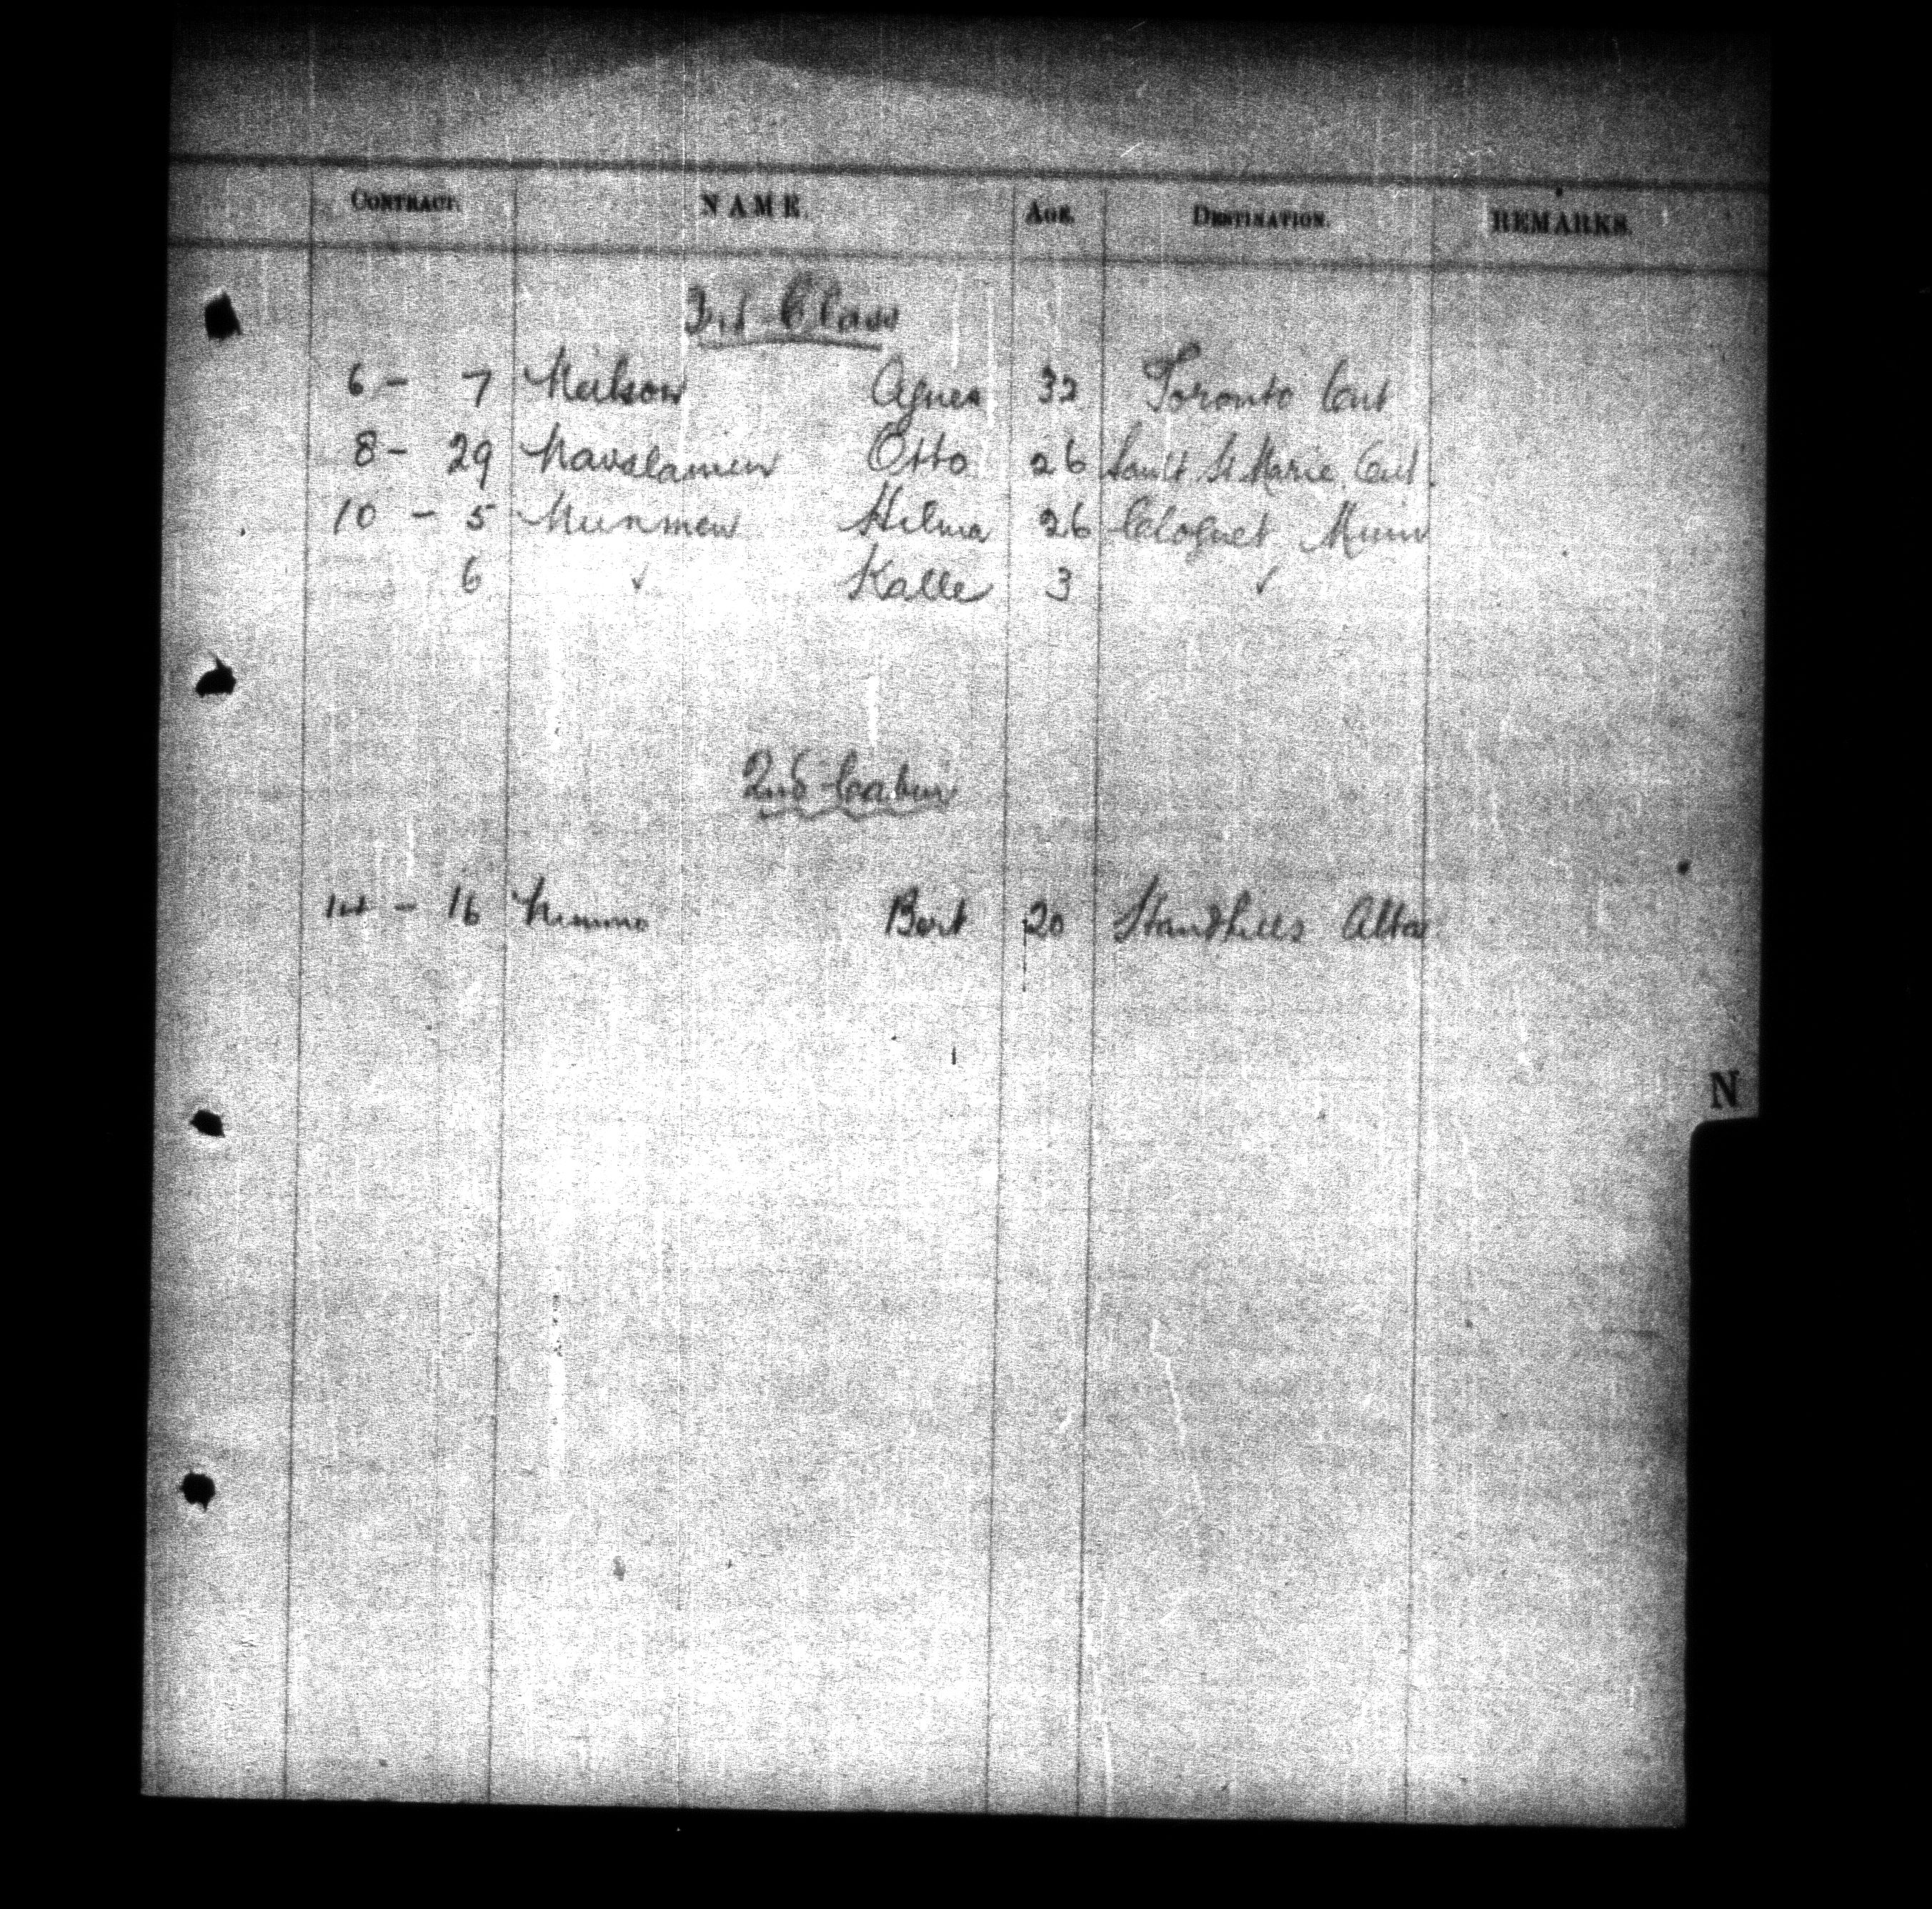 CONTRACT. NAME. AGE. DESTINATION. REMARKS.
3rd Class
6 - 7 Neilson Agnes 32 Toronto Ont
8 - 29 Otto 26 Sault St Marie Ont.
10 - 5 Hilma 26 Cloquet Minn
6 ✓ Kalle 3 ✓
2nd Cabin
14 - 16 Nimmo Bert 20 Handhills Alta
N